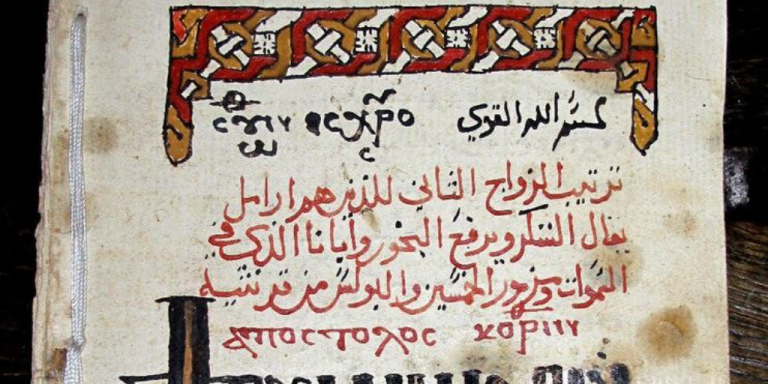 بسم الله القوي
ترتيب الزواج الثاني للذين هم ارامل
يقال الشكر ويرفع البخور وابانا الذي في
السموات ومزمور الخمسين والبولس من قرنتيه
ⲁⲡⲟⲥⲧⲟⲗⲟⲥ ⲕⲟⲣⲓⲛ